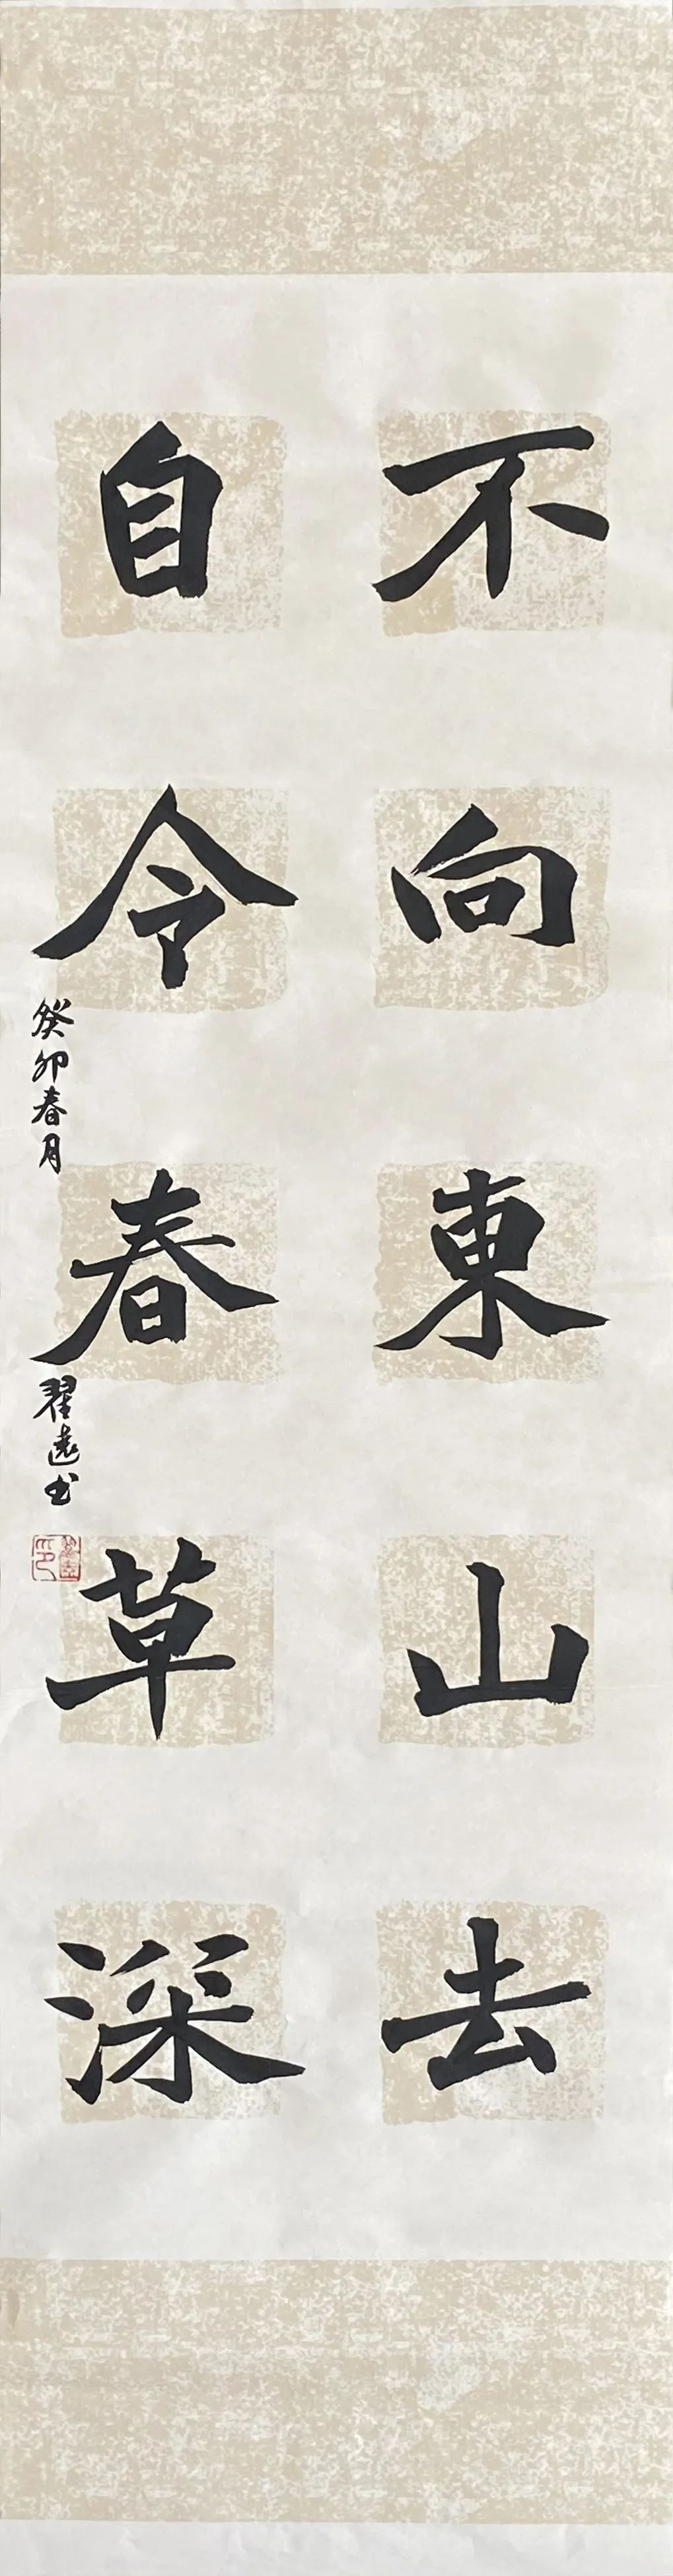 不向東山去
自令春草深
癸卯春月
翟遠书